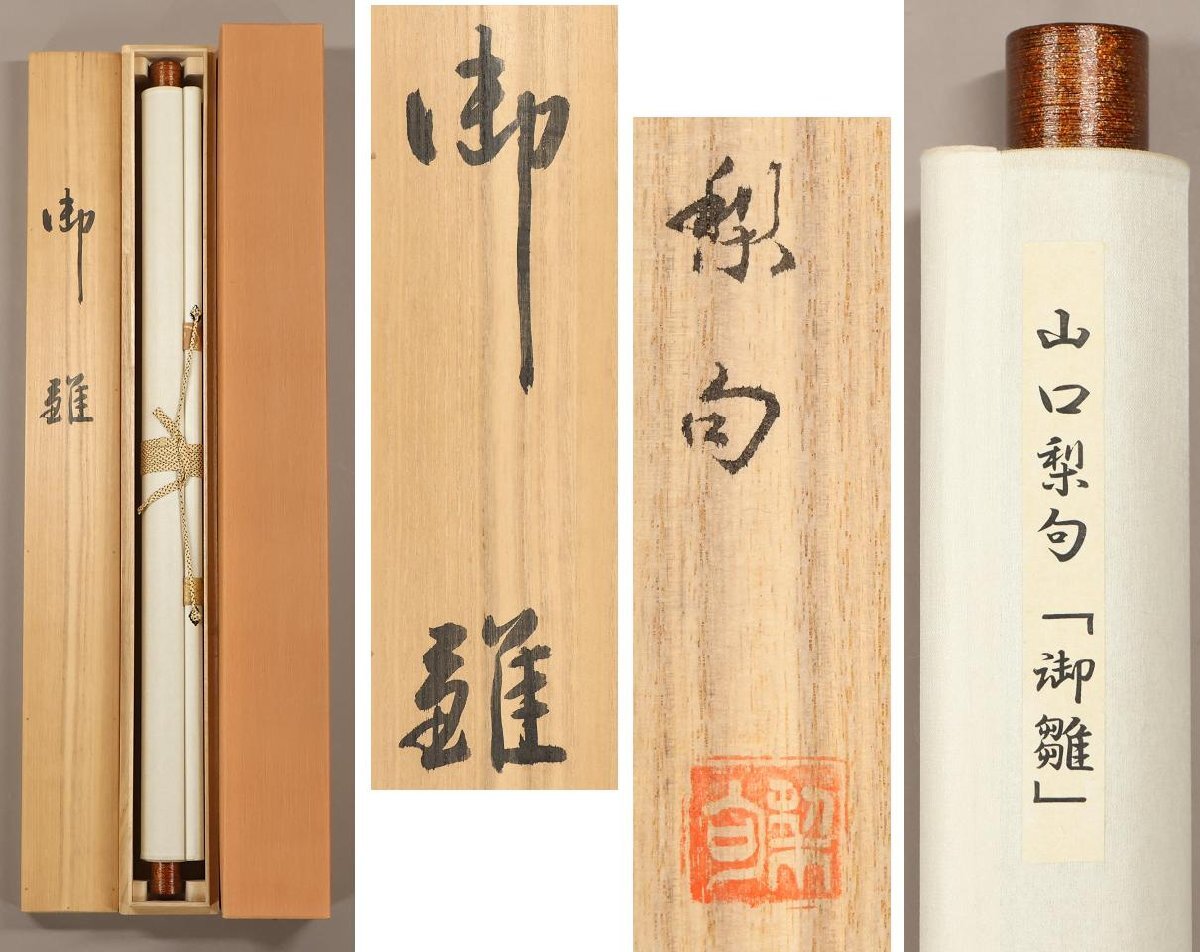 御雛
御雛
梨句
梨句
山口梨句「御雛」